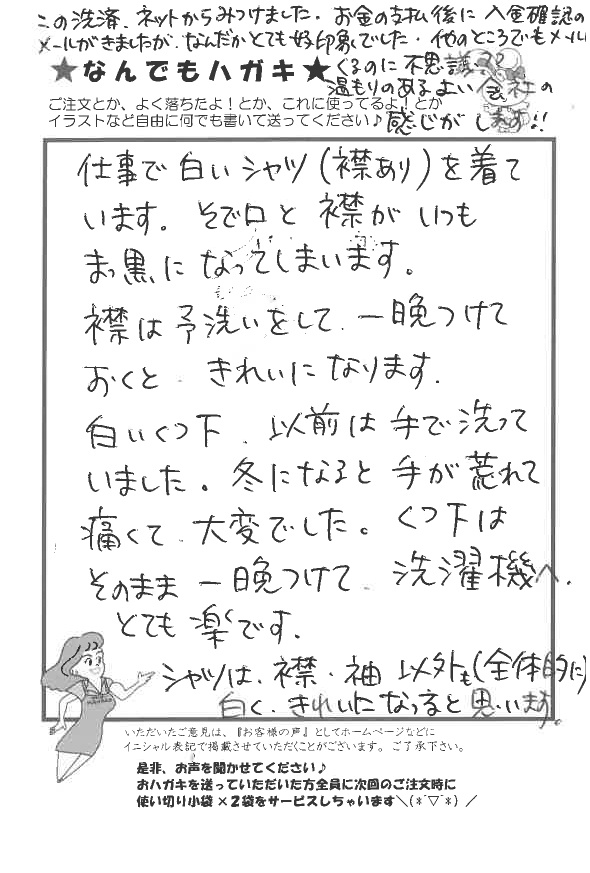 この洗済、ネットからみつけました。お金の支払後に入金確認の
メールがきましたが、なんだかとても好印象でした。他のところでもメール
くるのに不思議??
★なんでもハガキ★
温もりのあるよい会社の
ご注文とか、よく落ちたよ！とか、これに使ってるよ！とか
イラストなど自由に何でも書いて送ってください♪
感じがします!!
仕事で白いシャツ(襟あり)を着て
います。そで口と襟がいつも
まっ黒になってしまいます。
襟は予洗いをして、一晩つけて
おくと、きれいになります。
白いくつ下、以前は手で洗って
いました。冬になると手が荒れて
痛くて、大変でした。くつ下は
そのまま一晩つけて、洗濯機へ、
とても楽です。
シャツは、襟・袖以外も(全体的に)
白く、きれいになってると思います。
いただいたご意見は、『お客様の声』としてホームページなどに
イニシャル表記で掲載させていただくことがございます。ご了承下さい。
是非、お声を聞かせてください♪
おハガキを送っていただいた方全員に次回のご注文時に
使い切り小袋×2袋をサービスしちゃいます＼(*ˆ▽ˆ*)／